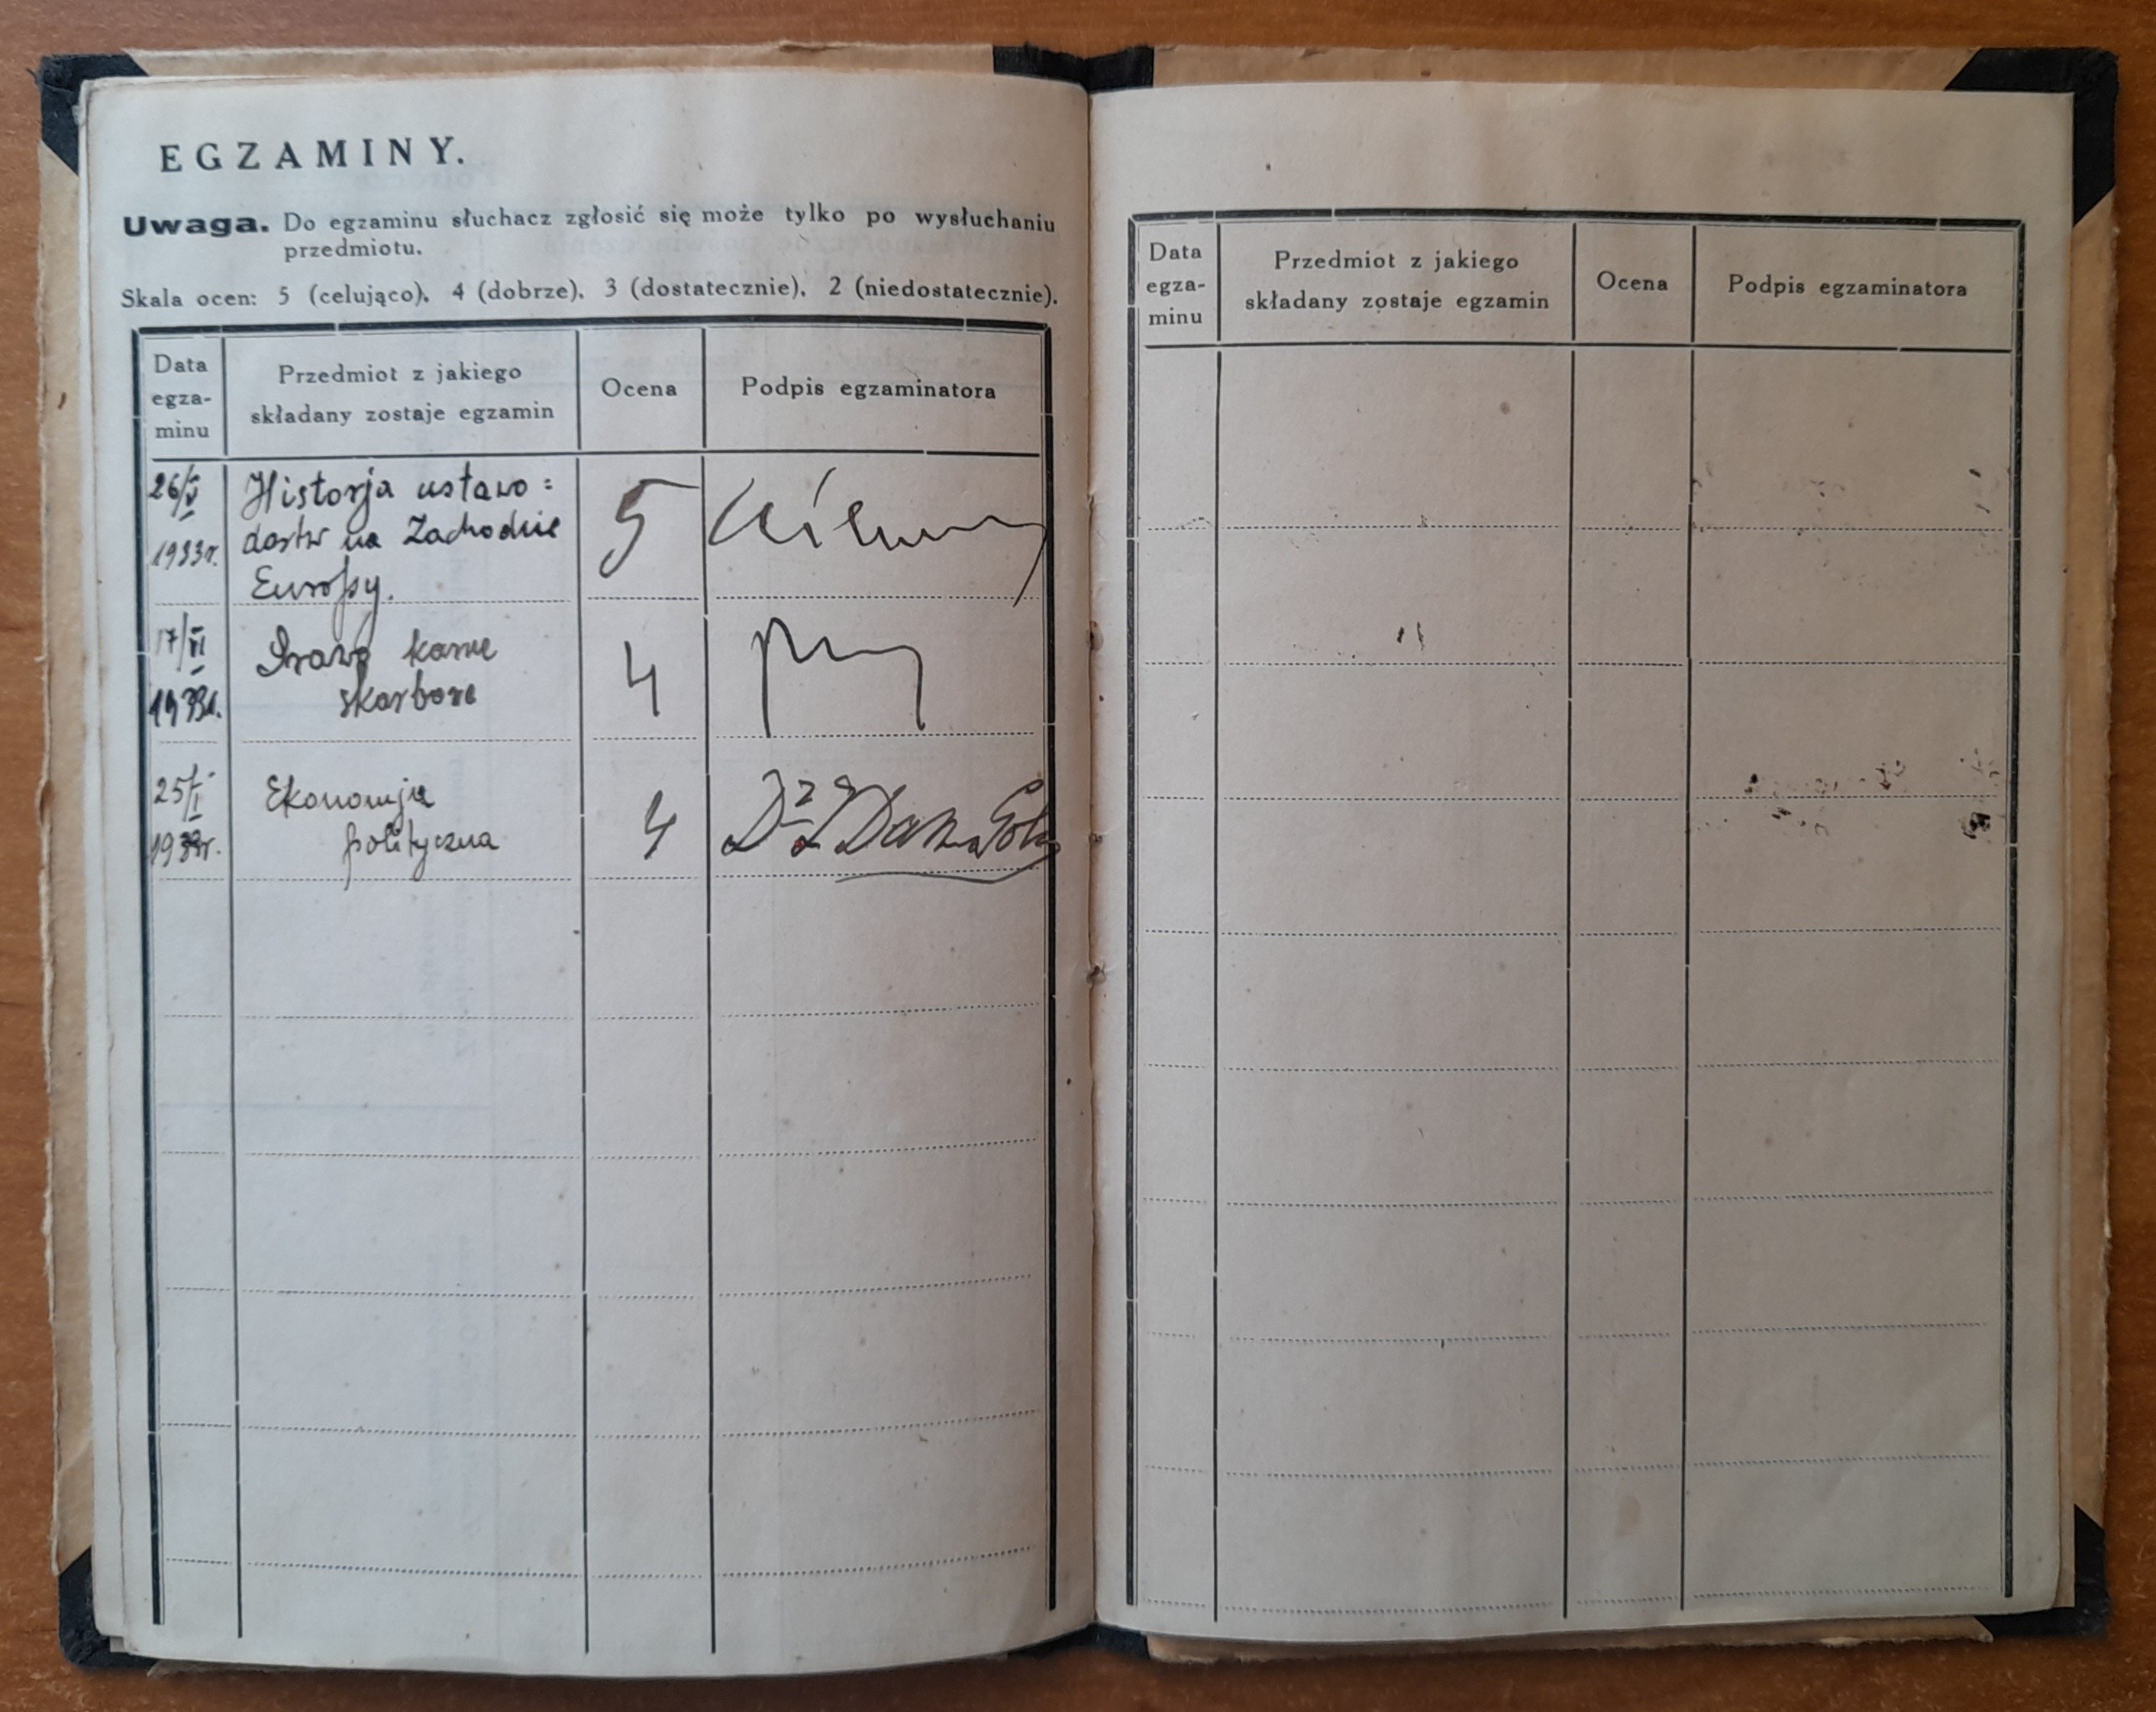 EGZAMINY.
Uwaga. Do egzaminu słuchacz zgłosić się może tylko po wysłuchaniu
przedmiotu.
Skala ocen: 5 (celująco), 4 (dobrze), 3 (dostatecznie), 2 (niedostatecznie).
Data
egza-
minu
Przedmiot z jakiego
składany zostaje egzamin
Ocena
Podpis egzaminatora
26/V
1933r.
Historja ustawo=
dastw na Zachodzie
Europy.
5
17/VI
Prawo karne
skarbowe
4
25/I
Ekonomja
polityczna
4
Data
egza-
minu
Przedmiot z jakiego
składany zostaje egzamin
Ocena
Podpis egzaminatora